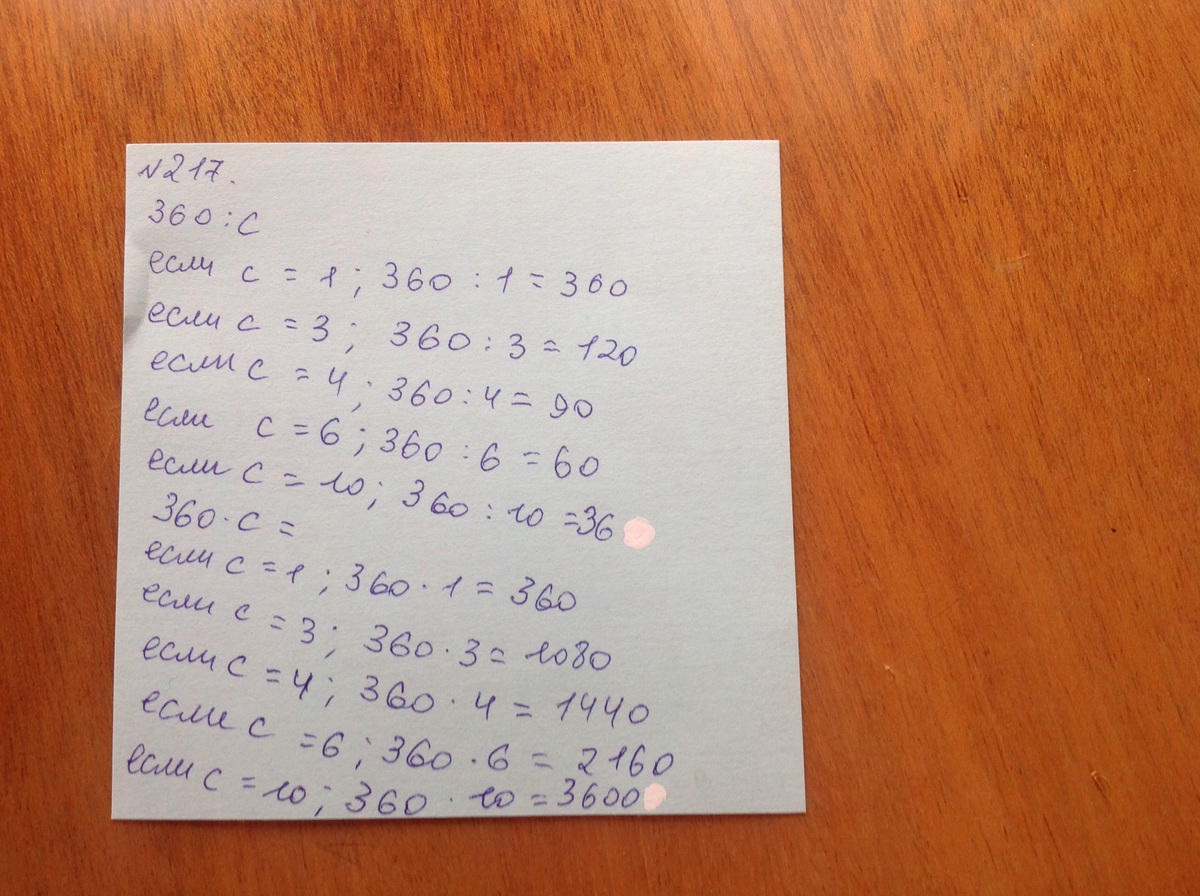 №217.
360:с
если с = 1; 360 : 1 = 360
если с = 3; 360 : 3 = 120
если с = 4; 360 : 4 = 90
если с = 6; 360 : 6 = 60
если с = 10; 360 : 10 = 36
360·с =
если с = 1; 360 · 1 = 360
если с = 3; 360 · 3 = 1080
если с = 4; 360 · 4 = 1440
если с = 6; 360 · 6 = 2160
если с = 10; 360 · 10 = 3600